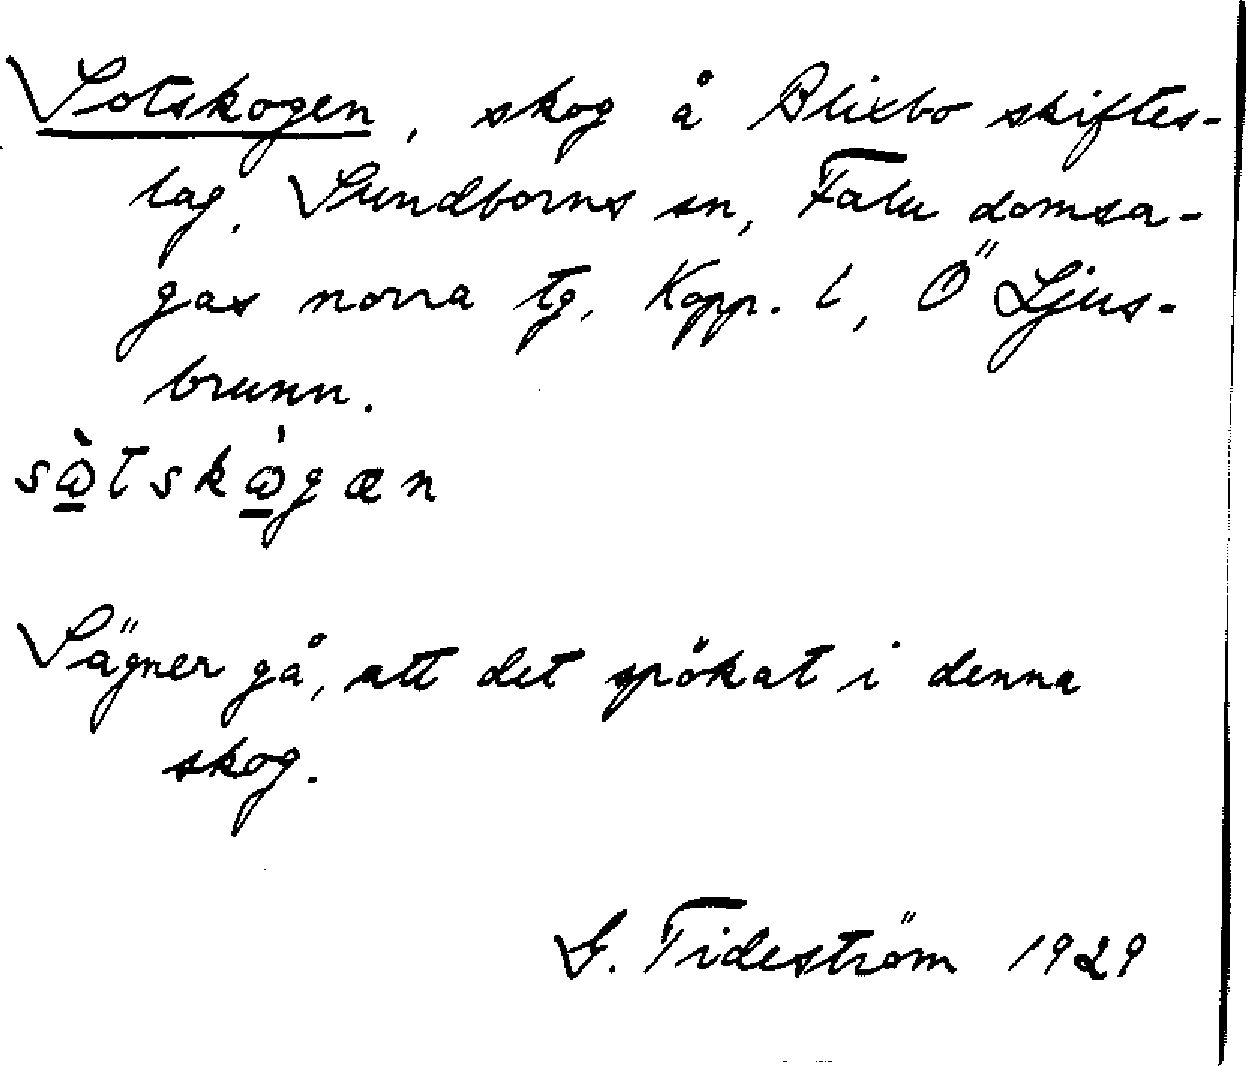 Sotskogen, skog å Blixbo skiftes-
lag, Sundborns sn, Falu domsa-
gas norra tg, Kopp. l, Ö Ljus-
brunn.
sὼ̱tskὼ̱gæn
Sägner gå, att det spökat i denna
skog.
G. Tideström 1929